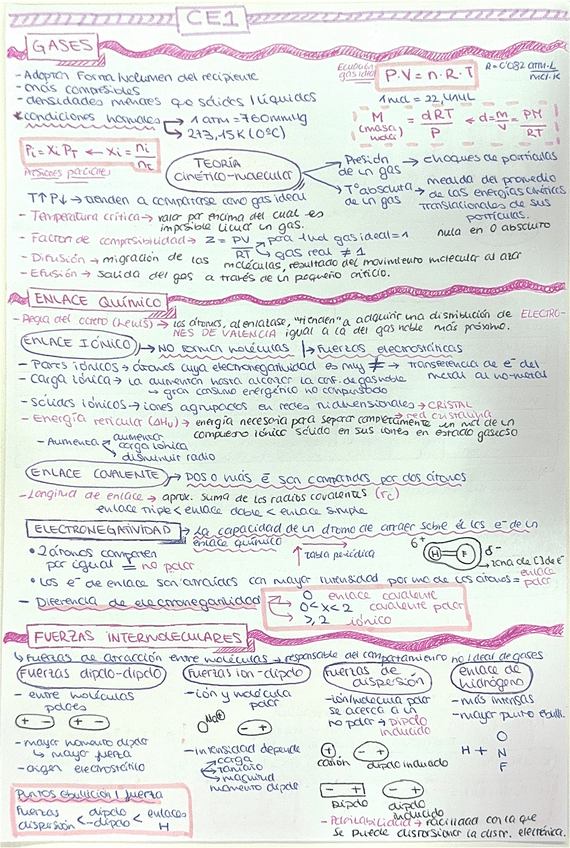 CE1
GASES
- Adoptan forma/volumen del recipiente
- más compresibles
- densidades menores q sólidos/líquidos
* condiciones normales → 1 atm = 760 mmHg
→ 273,15K (0ºC)
Ecuación gas ideal P·V = n·R·T R = 0'082 atm·L / mol·K
1 mol = 22,4 mol/L
M (masa molar) = dRT / P ← d = m/V = PM/RT
Pi = Xi PT ← Xi = ni/nt
Presiones parciales
TEORÍA CINÉTICO-MOLECULAR
Presión de un gas → choques de partículas
Tª absoluta de un gas → medida del promedio de las energías cinéticas translacionales de sus partículas.
nula en 0 absoluto
T↑ P↓ → tienden a comportarse como gas ideal
- Temperatura crítica → valor por encima del cual es
imposible licuar un gas.
- Factor de compresibilidad → Z = PV/RT → para 1 mol gas ideal = 1
→ gas real ≠ 1
- Difusión → migración de las moléculas, resultado del movimiento molecular al azar
- Efusión → salida del gas a través de un pequeño orificio.
ENLACE QUÍMICO
- Regla del octeto (Lewis) → los átomos, al enlazarse, "tienden" a adquirir una distribución de ELECTRO-
NES DE VALENCIA igual a la del gas noble más próximo.
ENLACE IÓNICO → NO forman moléculas → Fuerzas electrostáticas
- Pares iónicos → átomos cuya electronegatividad es muy ≠ → transferencia de e⁻ del
metal al no-metal
- Carga iónica → la aumentan hasta alcanzar la conf. de gas noble
→ gran consumo energético no compensado
- Sólidos iónicos → iones agrupados en redes tridimensionales → CRISTAL
→ red cristalina
- Energía reticular (ΔHu) → energía necesaria para separar completamente un mol de un
compuesto iónico sólido en sus iones en estado gaseoso
- Aumenta aumentar carga iónica
disminuir radio
ENLACE COVALENTE → Dos o más e⁻ son compartidos por dos átomos
- Longitud de enlace → aprox. suma de los radios covalentes (rc)
enlace triple < enlace doble < enlace simple
ELECTRONEGATIVIDAD → La capacidad de un átomo de atraer sobre él los e⁻ de un
enlace químico
• 2 átomos comparten
por igual = no polar
tabla periódica
δ⁺ H F δ⁻
zona de [ ] de e⁻
• Los e⁻ de enlace son atraídos con mayor intensidad por uno de los átomos = enlace polar
- Diferencia de electronegatividad → 0 enlace covalente
0 < x < 2 covalente polar
≥ 2 iónico
FUERZAS INTERMOLECULARES
↳ Fuerzas de atracción entre moléculas → responsable del comportamiento no ideal de gases
Fuerzas dipolo-dipolo
- entre moléculas
polares
+ - + -
- mayor momento dipolar
↳ mayor fuerza
- origen electrostático
Puntos ebullición / fuerza
Fuerzas dispersión < dipolo-dipolo < enlaces H
Fuerzas ion-dipolo
- ión y molécula
polar
+ -
- Intensidad depende
carga
tamaño
magnitud
momento dipolo
fuerzas de dispersión
- ión/molécula polar
se acerca a un
no polar → Dipolo
inducido
+ + -
catión dipolo inducido
- + + -
Dipolo dipolo
inducido
- Polarizabilidad → facilidad con la que
se puede distorsionar la distr. electrónica.
enlace de hidrógeno
- más intensas
- mayor punto ebull.
H + O
N
F